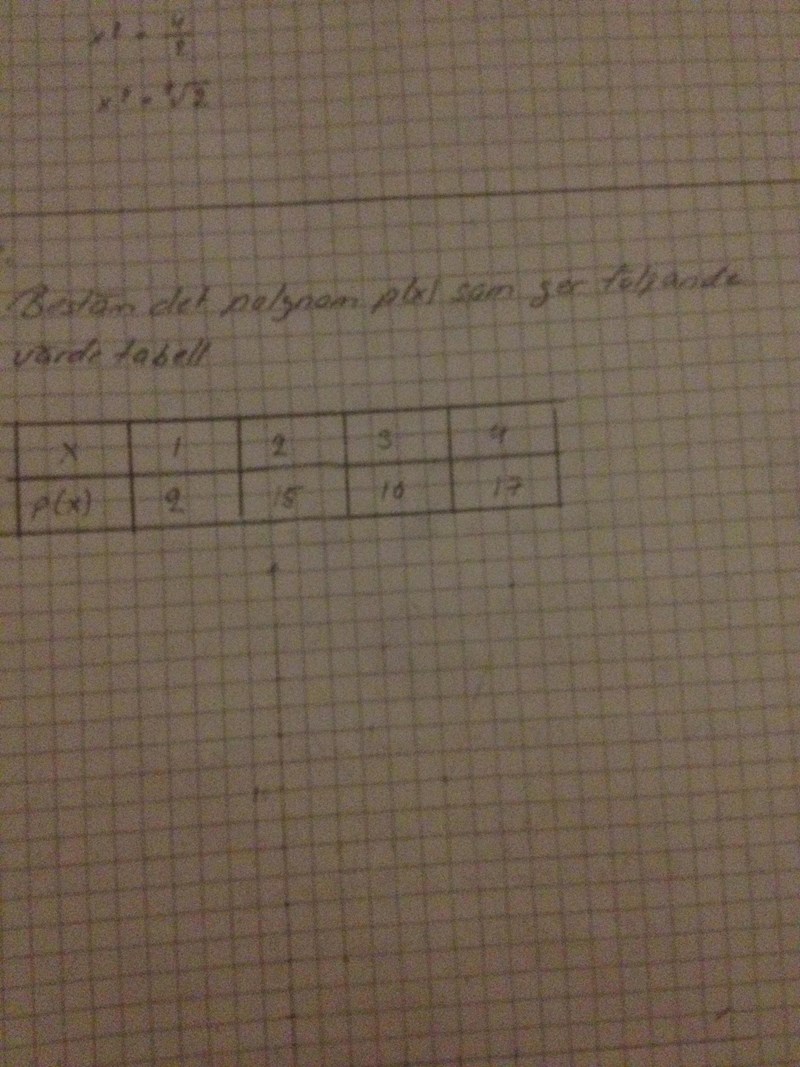 x³ = 4/2
x³ = ³√2
Bestäm det polynom p(x) som ger följande
värde tabell
x 1 2 3 4
p(x) 2 15 10 17